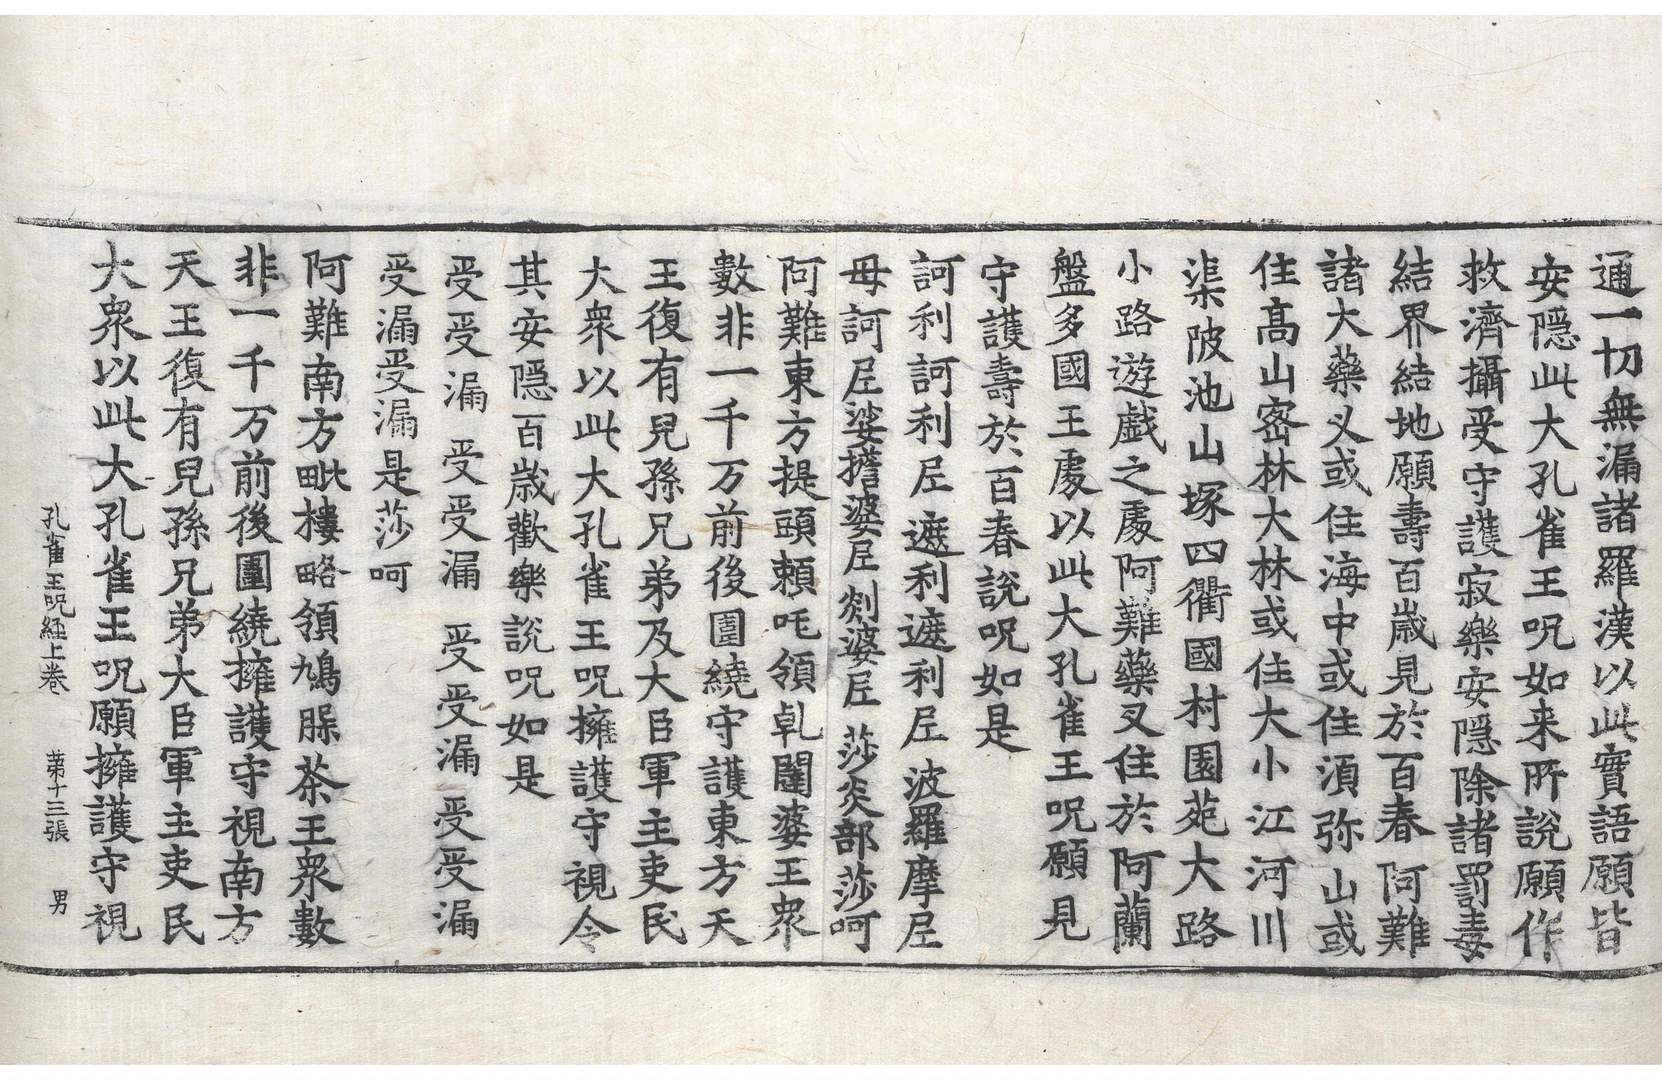 通一切無漏諸羅漢以此實語願皆
安隱此大孔雀王呪如来所說願作
救濟攝受守護寂樂安隱除諸罸毒
結界結地願壽百歲見於百春阿難
諸大藥义或住海中或住湏弥山或
住高山宻林大林或住大小江河川
渠陂池山塚四衢國村園苑大路
小路遊戲之處阿難藥叉住於阿蘭
盤多國王處以此大孔雀王呪願見
守護壽於百春說呪如是
訶利訶利𡰱遮利遮利𡰱波羅摩𡰱
母訶𡰱娑擔婆𡰱剡婆𡰱莎炎部莎呵
阿難東方提頭頼吒領乹闥婆王衆
數非一千万前後圍繞守護東方天
王復有兒孫兄弟及大臣軍主吏民
大衆以此大孔雀王呪擁護守視令
其安隱百歲歡樂說呪如是
受受漏 受受漏 受受漏 受受漏
受漏受漏是莎呵
阿難南方毗樓略領鳩脲茶王衆數
非一千万前後圍繞擁護守視南方
天王復有兒孫兄弟大臣軍主吏民
大衆以此大孔雀王呪願擁護守視
孔雀王呪經上卷 苐十三張 男